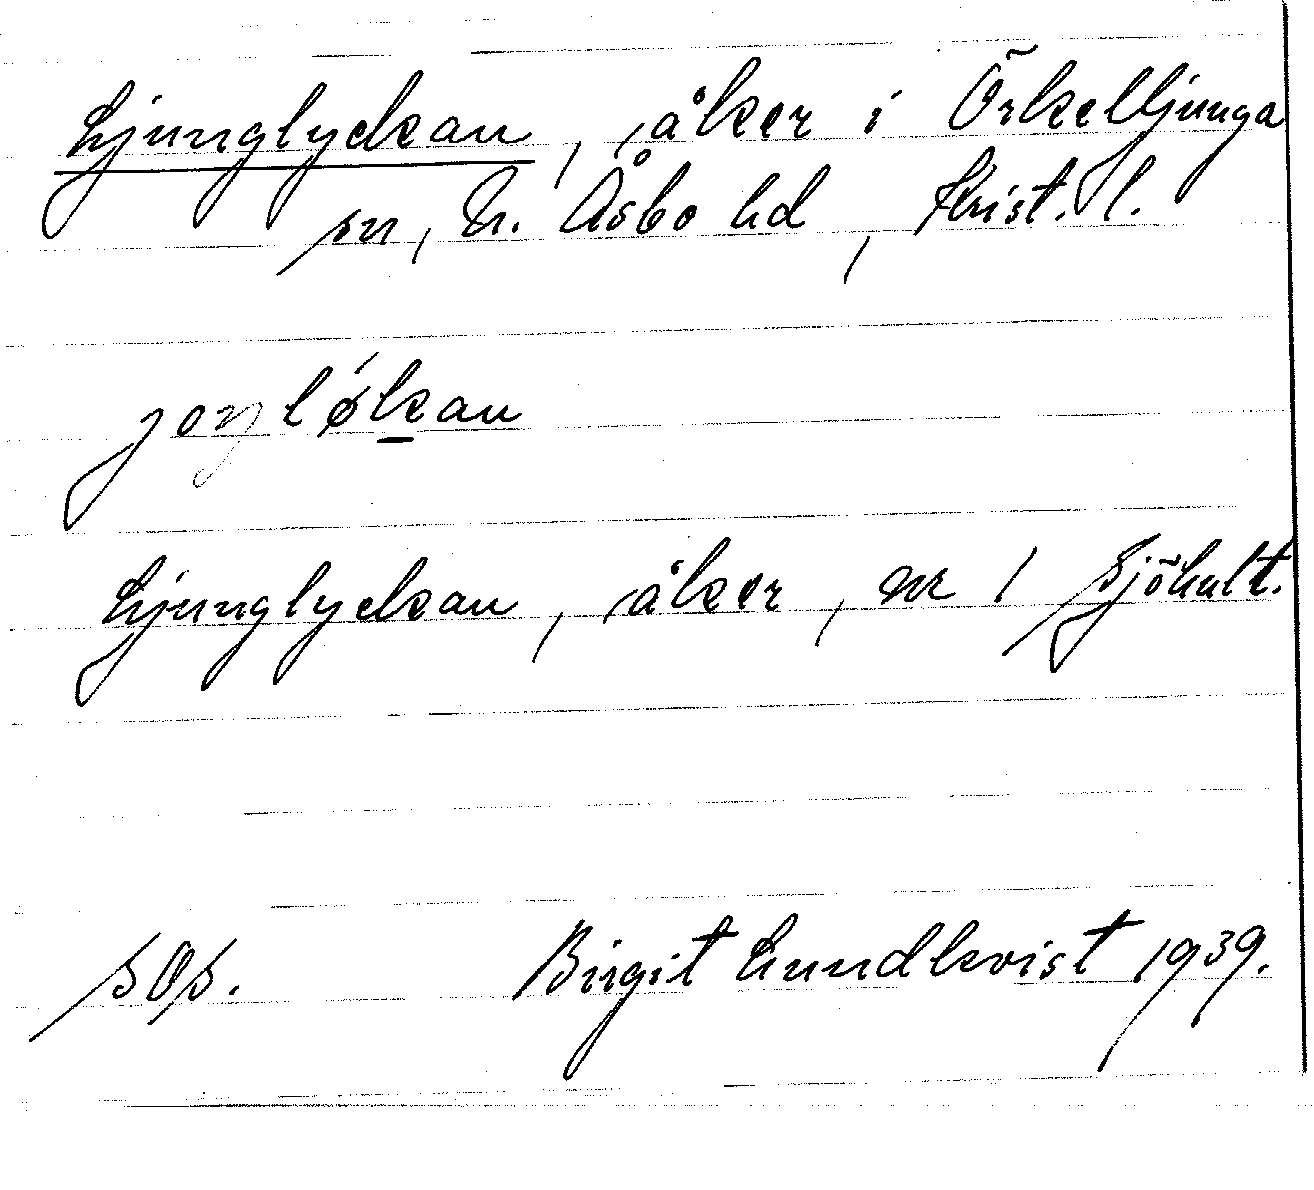 Ljunglyckan, åker i Örkelljunga
sn, N. Åsbo hd, Krist. l.
joŋlǿk̲an
Ljunglyckan, åker, nr 1 Sjöhult.
sOs. Birgit Lundkvist 1939.